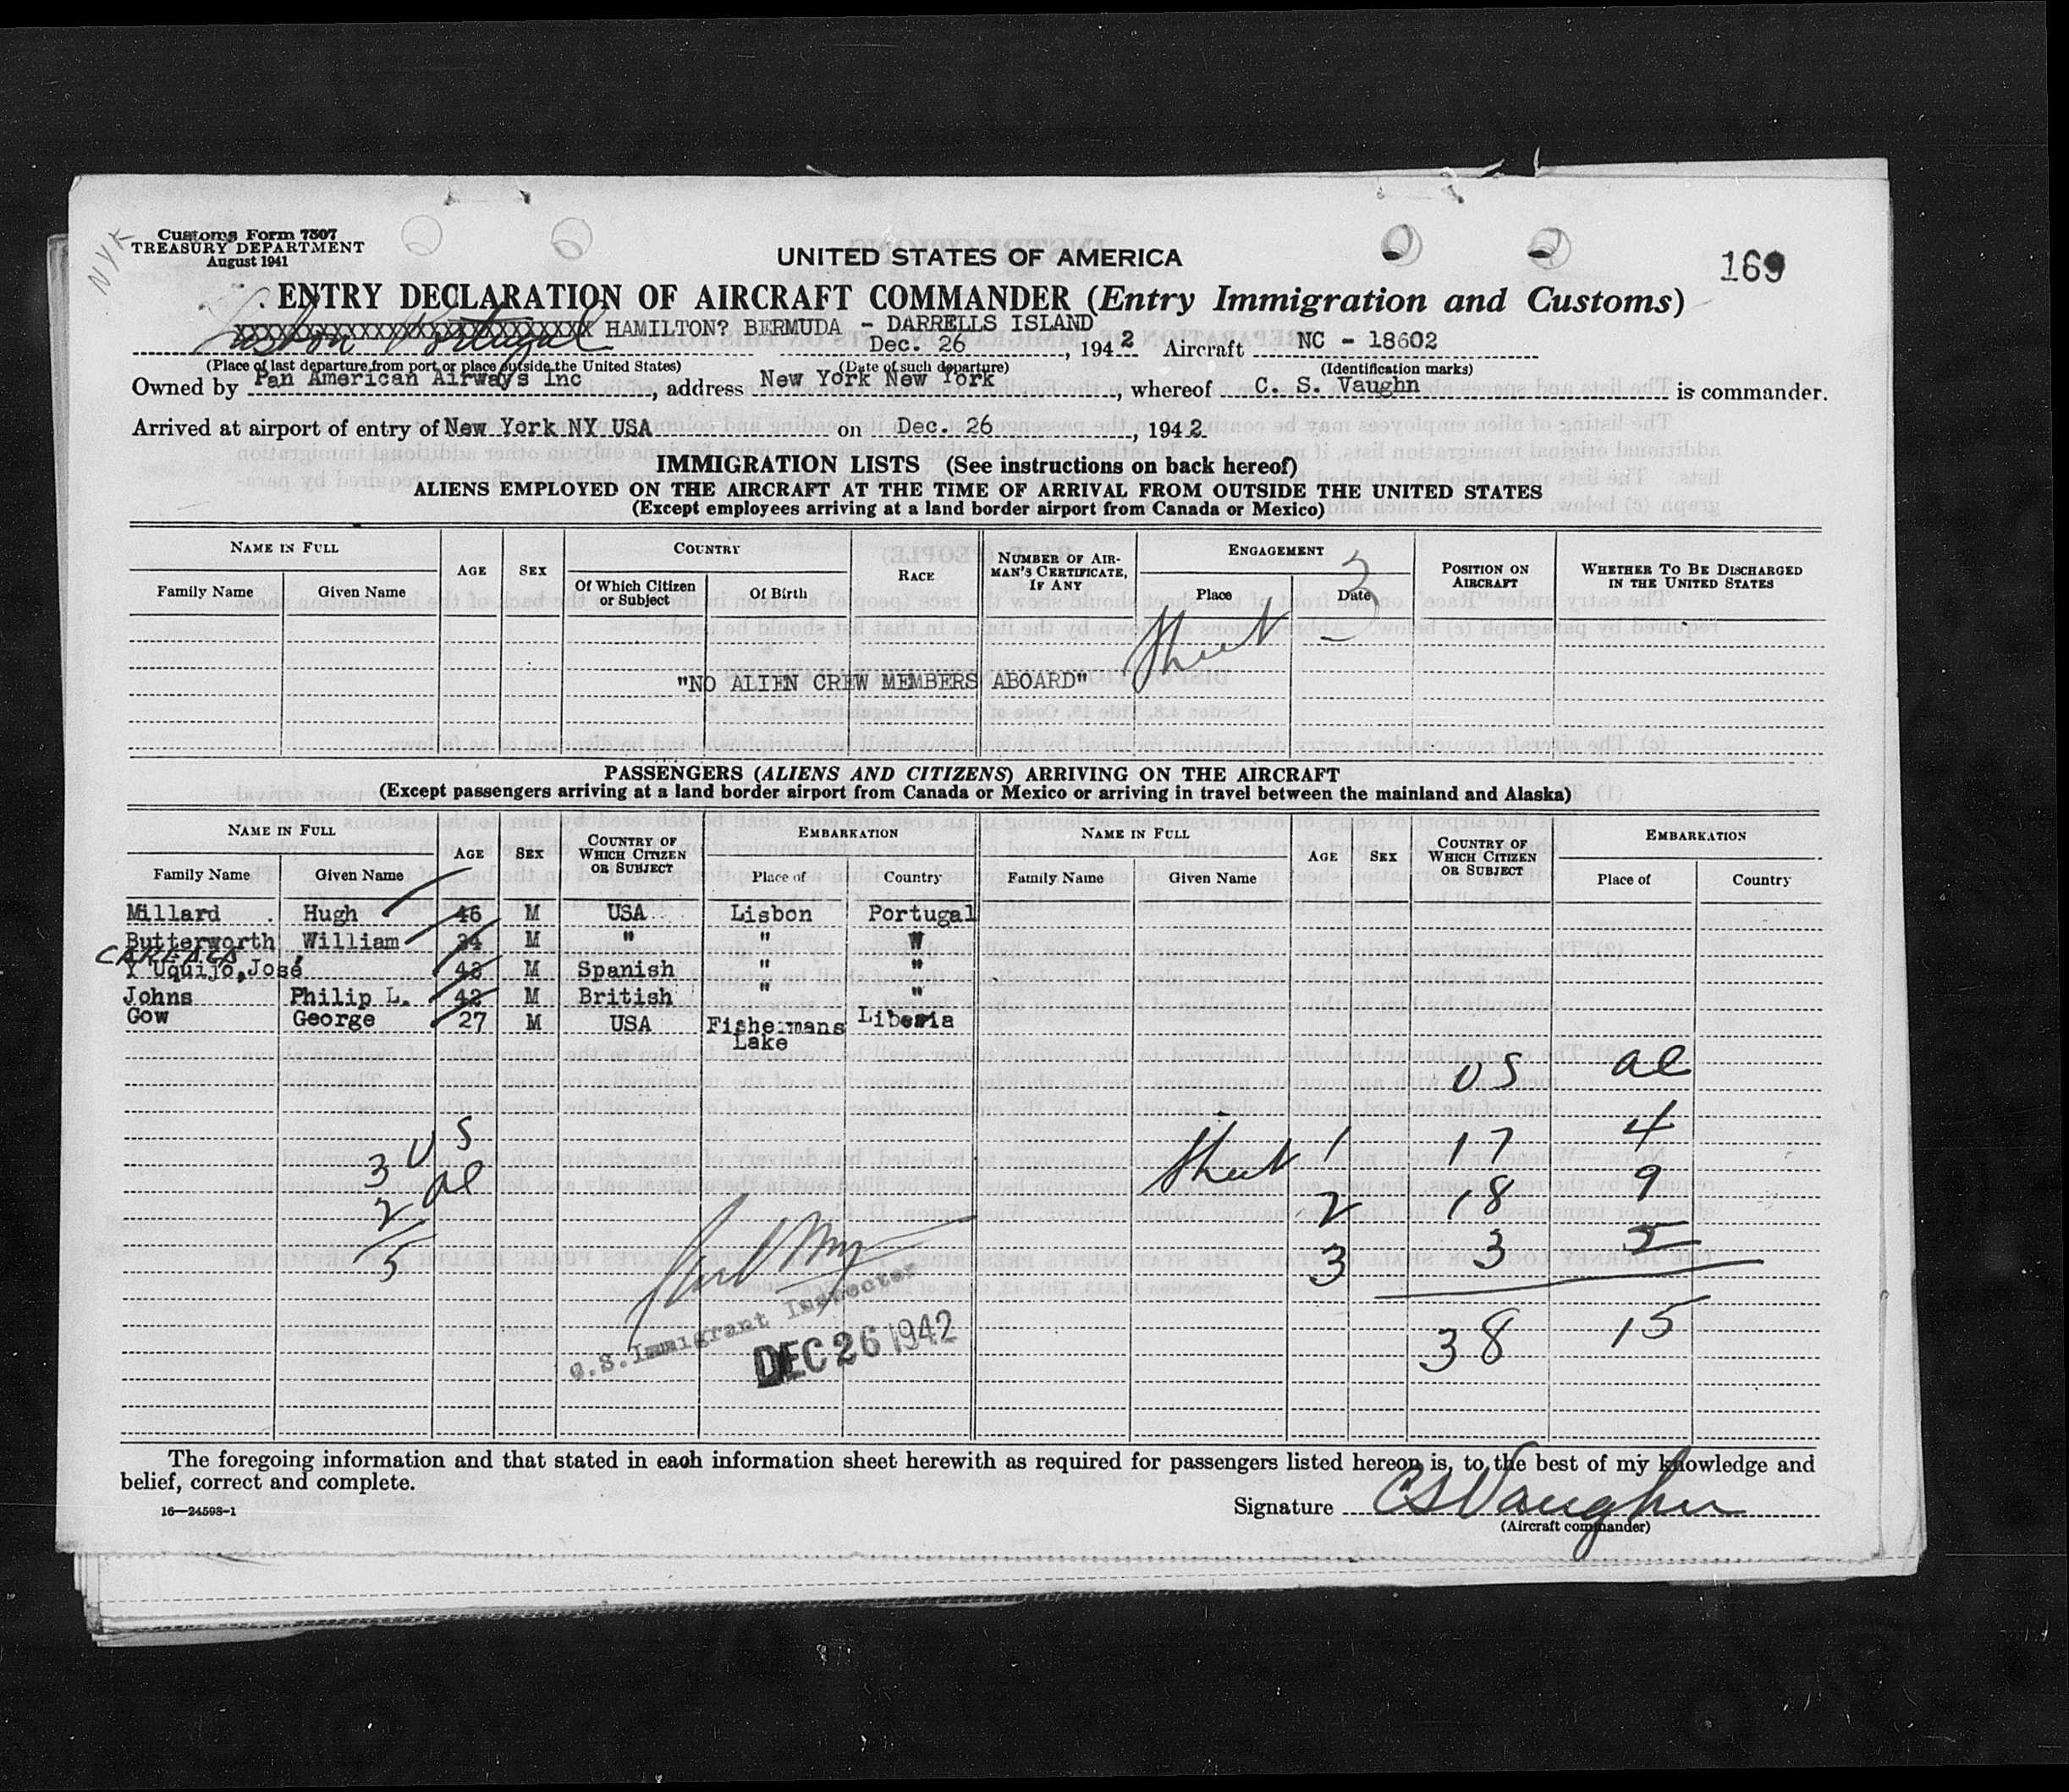 NYK
Customs Form 7507
TREASURY DEPARTMENT
August 1941
UNITED STATES OF AMERICA
169
ENTRY DECLARATION OF AIRCRAFT COMMANDER (Entry Immigration and Customs)
Lisbon Portugal
XXXXXXXXXXXXXXXXXXXXXXXX HAMILTON? BERMUDA - DARRELLS ISLAND
Dec. 26, 1942 Aircraft NC - 18602
(Place of last departure from port or place outside the United States) (Date of such departure) (Identification marks)
Owned by Pan American Airways Inc, address New York New York, whereof C. S. Vaughn is commander.
Arrived at airport of entry of New York NY USA on Dec. 26, 1942
IMMIGRATION LISTS (See instructions on back hereof)
ALIENS EMPLOYED ON THE AIRCRAFT AT THE TIME OF ARRIVAL FROM OUTSIDE THE UNITED STATES
(Except employees arriving at a land border airport from Canada or Mexico)
NAME IN FULL AGE SEX COUNTRY RACE NUMBER OF AIRMAN'S CERTIFICATE, IF ANY ENGAGEMENT POSITION ON AIRCRAFT WHETHER TO BE DISCHARGED IN THE UNITED STATES
Family Name Given Name Of Which Citizen or Subject Of Birth Place Date
Sheet 3
"NO ALIEN CREW MEMBERS ABOARD"
PASSENGERS (ALIENS AND CITIZENS) ARRIVING ON THE AIRCRAFT
(Except passengers arriving at a land border airport from Canada or Mexico or arriving in travel between the mainland and Alaska)
NAME IN FULL AGE SEX COUNTRY OF WHICH CITIZEN OR SUBJECT EMBARKATION NAME IN FULL AGE SEX COUNTRY OF WHICH CITIZEN OR SUBJECT EMBARKATION
Family Name Given Name Place of Country Family Name Given Name Place of Country
Millard Hugh 46 M USA Lisbon Portugal
Butterworth William 34 M " " "
CAREAGA
Y Uquijo, José 48 M Spanish " "
Johns Philip L. 42 M British " "
Gow George 27 M USA Fishermans Liberia
Lake
US al
US
3 al
2
5
Sheet 1 17 4
2 18 9
3 3 2
38 15
U.S. Immigrant Inspector
DEC 26 1942
The foregoing information and that stated in each information sheet herewith as required for passengers listed hereon is, to the best of my knowledge and
belief, correct and complete.
16—24598-1
Signature CS Vaughn
(Aircraft commander)